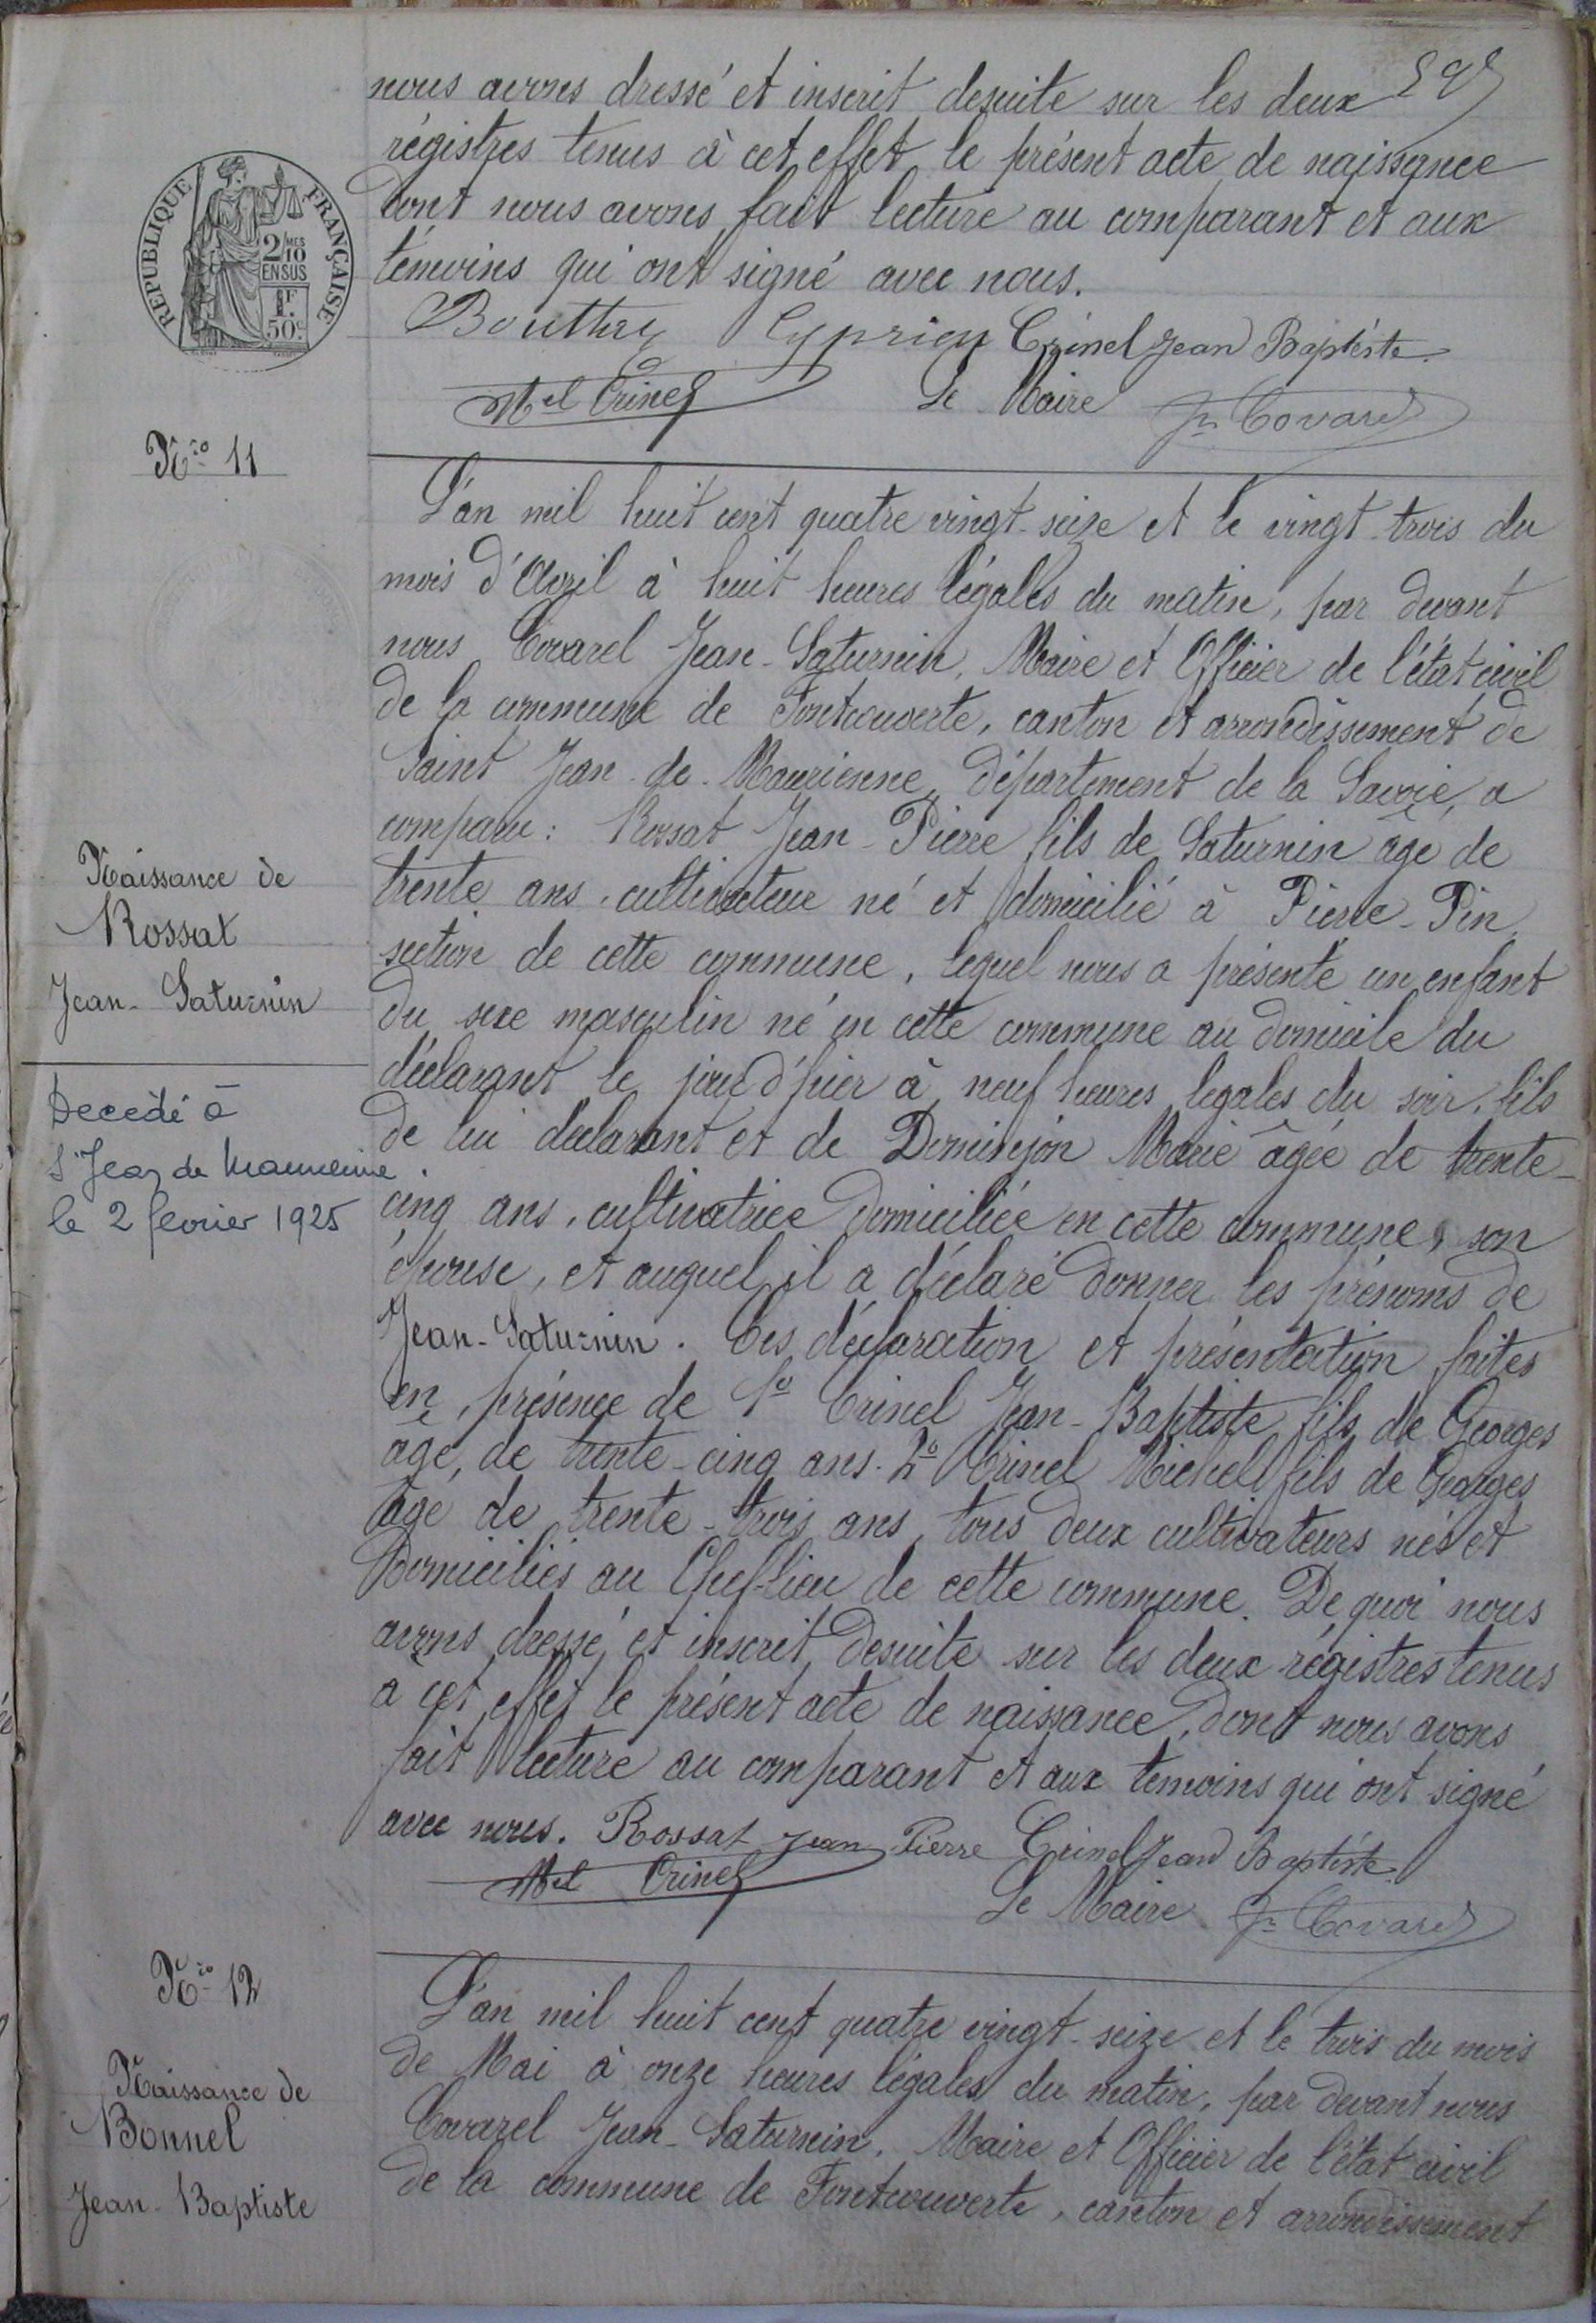 nous avons dressé et inscrit desuite sur les deux
régistres tenus à cet effet le présent acte de naissance
dont nous avons fait lecture au comparant et aux
témoins qui ont signé avec nous.
REPUBLIQUE FRANÇAISE
2/10 MES
EN SUS
1F
50c
Cyprien Crinel Jean Baptiste
Mel Crinel Le Maire Jn Covarel
Nro 11
L'an mil huit cent quatre vingt-seize et le vingt-trois du
mois d'Avril à huit heures légales du matin, par devant
nous Covarel Jean-Saturnin, Maire et Officier de l'état civil
de la commune de Fontcouverte, canton et arrondissement de
Saint Jean-de-Maurienne, département de la Savoie, a
comparu: Rossat Jean-Pierre fils de Saturnin âgé de
trente ans, cultivateur né et domicilié à Pierre-Pin,
section de cette commune, lequel nous a présenté un enfant
du sexe masculin né en cette commune au domicile du
déclarant le jour d'hier à neuf heures légales du soir, fils
de lui déclarant et de Dominjon Marie âgée de trente-
cinq ans, cultivatrice domiciliée en cette commune, son
épouse, et auquel il a déclaré donner les prénoms de
Jean-Saturnin. Ces déclaration et présentation faites
en présence de 1º Crinel Jean-Baptiste fils de Georges
âgé de trente-cinq ans. 2º Crinel Michel fils de Georges
âgé de trente-trois ans, tous deux cultivateurs nés et
domiciliés au Chef-lieu de cette commune. De quoi nous
avons dressé et inscrit desuite sur les deux régistres tenus
à cet effet le présent acte de naissance, dont nous avons
fait lecture au comparant et aux témoins qui ont signé
avec nous. Rossat Jean Pierre Crinel Jean Baptiste
Mel Crinel Le Maire Jn Covarel
Naissance de
Rossat
Jean-Saturnin
Decédé à
St Jean de Maurienne
le 2 février 1925
Nro 12
Naissance de
Bonnel
Jean-Baptiste
L'an mil huit cent quatre vingt-seize et le trois du mois
de Mai à onze heures légales du matin, par devant nous
Covarel Jean-Saturnin, Maire et Officier de l'état civil
de la commune de Fontcouverte, canton et arrondissement